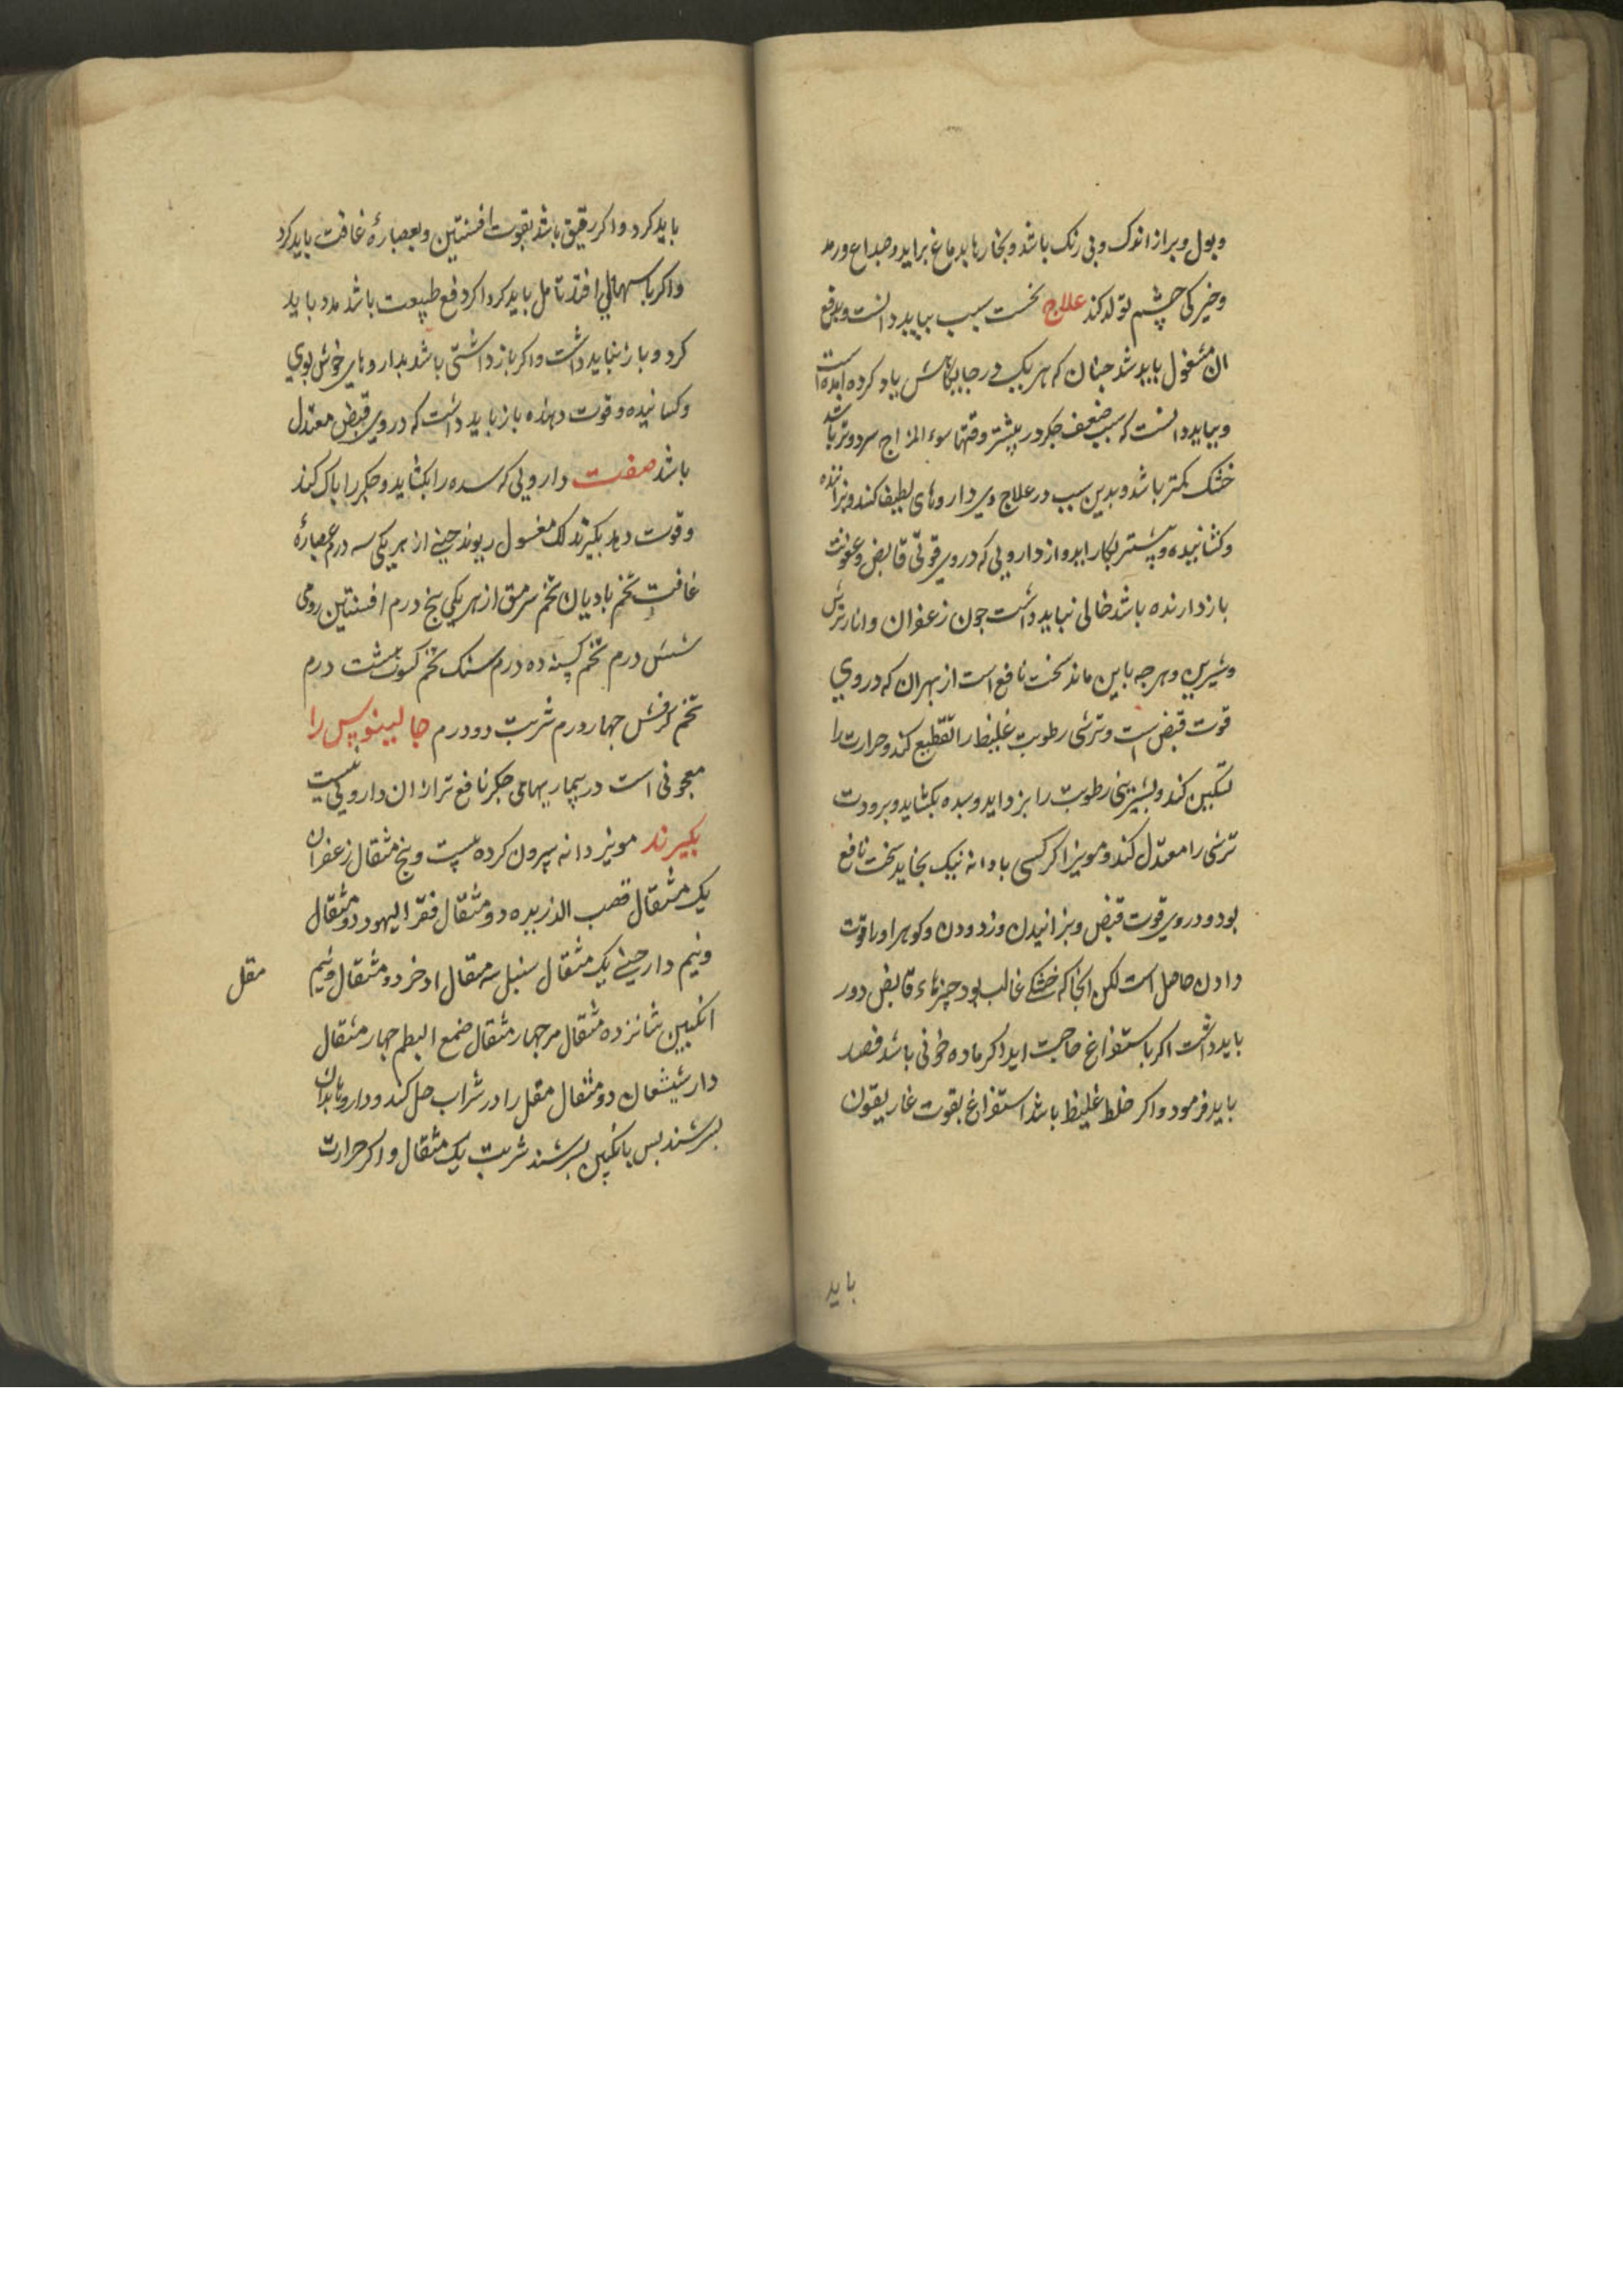 وبول وبراز اندک وبی رنک باشد وبخارها بدماغ براید وصداع ورمد
وخیرکی چشم تولد کند علاج نخست سبب بباید دانست وبدفع
ان مشغول باید شد جنان که هر یک در جایکاهش یاد کرده امده است
وبباید دانست که سبب ضعف جکر در بیشتر وقتها سوء المزاج سرد وتر باشد
خشک کمتر باشد وبدین سبب در علاج وی داروهای لطیف کننده وبزاننده
وکشاینده بیشتر بکار اید واز دارویی که در وی قوتی قابض وعفونت
باز دارنده باشد خالی نباید داشت جون زعفران وانار ترش
وشیرین وهرجه باین ماند سخت نافع است از بهر ان که در وی
قوت قبض است وترشی رطوبت غلیظ را تقطیع کند وحرارت را
تسکین کند وبشیرینی رطوبت را بزداید وسده بکشاید وبرودت
ترشی را معدل کند ومویز اکر کسی با دانه نیک بخاید سخت نافع
بود ودر وی قوت قبض وبزانیدن وزدودن وکوهر او را قوت
دادن حاصل است لکن انجا که خشکی غالب بود جیزهاء قابض دور
باید داشت اکر باستفراغ حاجت اید اکر ماده خونی باشد فصد
باید فرمود واکر خلط غلیظ باشد استفراغ بقوت غاریقون
باید
باید کرد واکر رقیق باشد بقوت افسنتین وبعصارۀ غافت باید کرد
واکر باسهالی افتد تامل باید کرد اکر دفع طبیعت باشد مدد باید
کرد وباز نباید داشت واکر باز داشتی باشد بداروهای خوش بوی
وکشاینده وقوت دهنده باز باید داشت که در وی قبض معتدل
باشد صفت دارویی که سده را بکشاید وجکر را باک کند
وقوت دهد بکیرند لک مغسول ریوند جینی از هر یکی سه درم عصارۀ
غافت تخم بادیان تخم سرمق از هر یکی بنج درم افسنتین رومی
شش درم تخم کسنه ده درم سنک تخم کسوت هشت درم
تخم کرفش جهار درم شربت دو درم جالینوس را
معجونی است در بیماریهای جکر نافع تر از ان داروکی نیست
بکیرند مویز دانه بیرون کرده بیست وبنج مثقال زعفران
یک مثقال قصب الذریره دو مثقال فقر الیهود دو مثقال
ونیم دارجینی یک مثقال سنبل سه مثقال اذخر دو مثقال ونیم
مقل
انکبین شانزده مثقال مر جهار مثقال صمغ البطم جهار مثقال
دارشیشعان دو مثقال مقل را در شراب حل کنند وداروها بدان
بسرشند بس بانکبین بسرشند شربت یک مثقال واکر حرارت